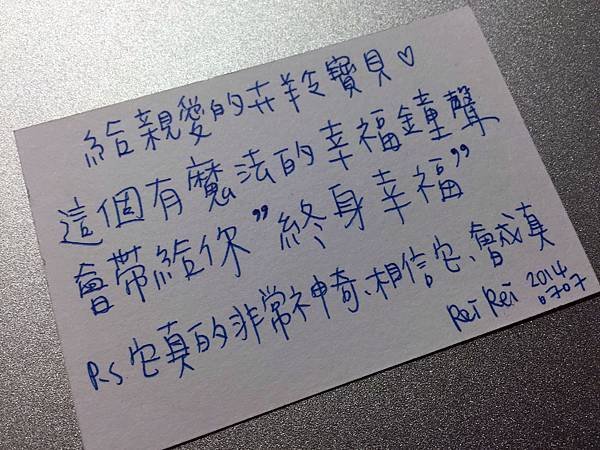 給親愛的卉羚寶貝♡
這個有魔法的幸福鐘聲
會帶給你"終身幸福"
P.S 它真的非常神奇、相信它、會成真
Rei Rei 2014
0707